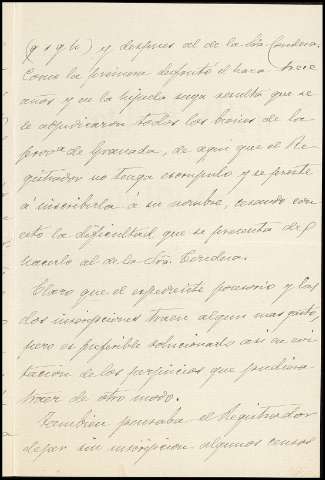 (q s g h) y despues al de la Sra Condesa.
Como la primera defuntó el hace trece
años y en la hijuela suya resulta que se
le adjudicaron todos los bienes de la
provª de Granada, de aqui que el Re-
gistrador no tenga escrupulo y se preste
á inscribirla á su nombre, cesando con
esto la dificultad que se presenta de
hacerlo al de la Sra.
Claro que el expediente posesorio y las
dos inscripciones traen algun mas gasto,
pero es preferible solucionarlo asi en evi-
tacion de los perjuicios que pudiera
traer de otro modo.
Tambien pensaba el Registrador
dejar sin inscripcion algunos censos